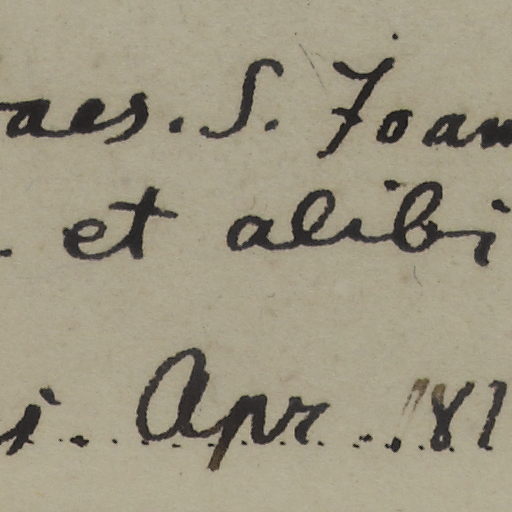 aes. S. Joan
et alibi
Apr. 181